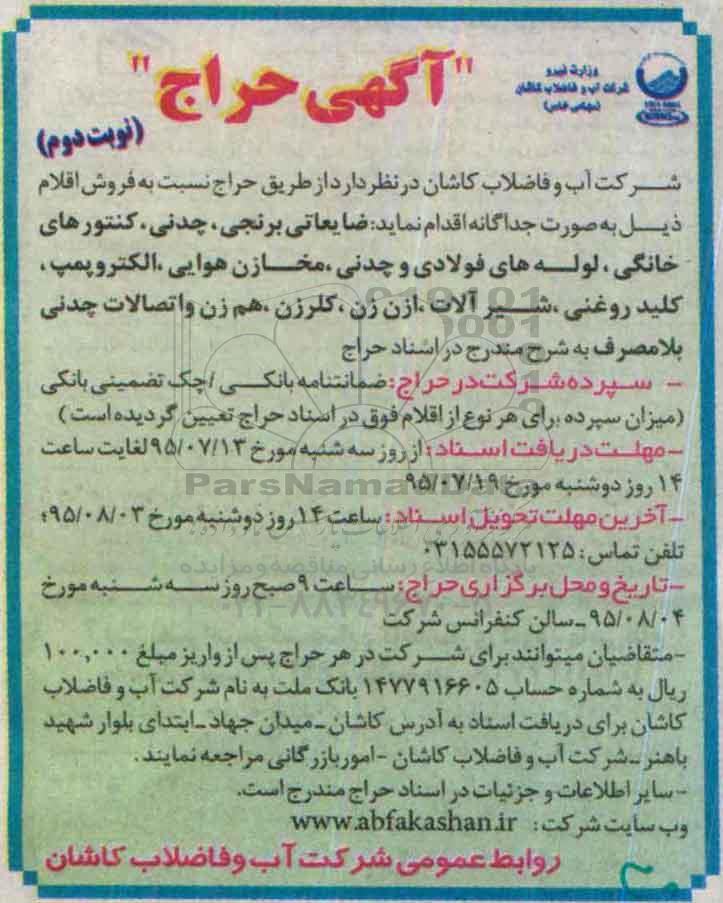 وزارت نیرو
شرکت آب و فاضلاب کاشان
(سهامی خاص)
"آگهی حراج"
(نوبت دوم)
شرکت آب و فاضلاب کاشان در نظر دارد از طریق حراج نسبت به فروش اقلام
ذیل به صورت جداگانه اقدام نماید: ضایعاتی برنجی، چدنی، کنتور های
خانگی، لوله های فولادی و چدنی، مخازن هوایی، الکتروپمپ،
کلید روغنی، شیر آلات، ازن زن، کلرزن، هم زن و اتصالات چدنی
بلامصرف به شرح مندرج در اسناد حراج
- سپرده شرکت در حراج: ضمانتنامه بانکی / چک تضمینی بانکی
(میزان سپرده برای هر نوع از اقلام فوق در اسناد حراج تعیین گردیده است)
- مهلت دریافت اسناد: از روز سه شنبه مورخ ۹۵/۰۷/۱۳ لغایت ساعت
۱۴ روز دوشنبه مورخ ۹۵/۰۷/۱۹
- آخرین مهلت تحویل اسناد: ساعت ۱۴ روز دوشنبه مورخ ۹۵/۰۸/۰۳؛
تلفن تماس: ۰۳۱۵۵۵۷۲۱۲۵
- تاریخ و محل برگزاری حراج: ساعت ۹ صبح روز سه شنبه مورخ
۹۵/۰۸/۰۴ - سالن کنفرانس شرکت
- متقاضیان میتوانند برای شرکت در هر حراج پس از واریز مبلغ ۱۰۰,۰۰۰
ریال به شماره حساب ۱۴۷۷۹۱۶۶۰۵ بانک ملت به نام شرکت آب و فاضلاب
کاشان برای دریافت اسناد به آدرس کاشان - میدان جهاد - ابتدای بلوار شهید
باهنر - شرکت آب و فاضلاب کاشان - امور بازرگانی مراجعه نمایند.
- سایر اطلاعات و جزئیات در اسناد حراج مندرج است.
وب سایت شرکت: www.abfakashan.ir
روابط عمومی شرکت آب و فاضلاب کاشان
ParsNamadData
پایگاه اطلاع رسانی مناقصه و مزایده